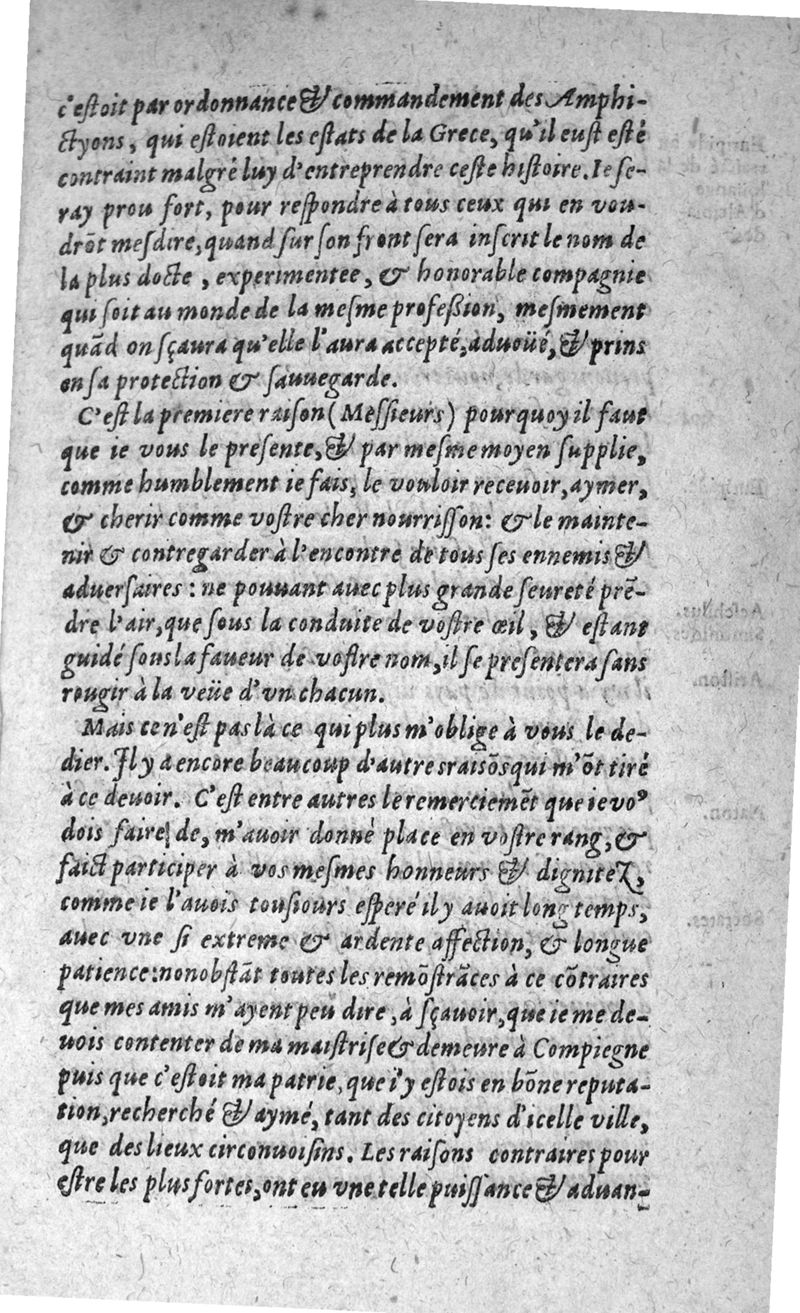 c'eſtoit par ordonnance & commandement des Amphi-
ctyons, qui eſtoient les eſtats de la Grece, qu'il euſt eſté
contraint malgré luy d'entreprendre ceſte hiſtoire. Ie ſe-
ray prou fort, pour reſpondre à tous ceux qui en vou-
drõt meſdire, quand ſur ſon front ſera inſcrit le nom de
la plus docte, experimentee, & honorable compagnie
qui ſoit au monde de la meſme profeſſion, meſmement
quãd on sçaura qu'elle l'aura accepté, aduoüé, & prins
en ſa protection & ſauuegarde.
C'eſt la premiere raiſon (Meſſieurs) pourquoy il faut
que ie vous le preſente, & par meſme moyen ſupplie,
comme humblement ie fais, le vouloir receuoir, aymer,
& cherir comme voſtre cher nourriſſon: & le mainte-
nir & contregarder à l'encontre de tous ſes ennemis &
aduerſaires: ne pouuant auec plus grande ſeureté prẽ-
dre l'air, que ſous la conduite de voſtre œil, & eſtant
guidé ſous la faueur de voſtre nom, il ſe preſentera sans
rougir à la veüe d'vn chacun.
Mais ce n'eſt pas là ce qui plus m'oblige à vous le de-
dier. Il y a encore beaucoup d'autres raiſõs qui m'õt tiré
à ce deuoir. C'eſt entre autres le remerciemẽt que ie voꝰ
dois faire de, m'auoir donné place en voſtre rang, &
faict participer à vos meſmes honneurs & dignitez,
comme ie l'auois touſiours eſperé il y auoit long temps,
auec vne ſi extreme & ardente affection, & longue
patience: nonobſtãt toutes les remõſtrãces à ce cõtraires
que mes amis m'ayent peu dire, à sçauoir, que ie me de-
uois contenter de ma maiſtriſe & demeure à Compiegne
puis que c'eſtoit ma patrie, que i'y eſtois en bõne reputa-
tion, recherché & aymé, tant des citoyens d'icelle ville,
que des lieux circonuoiſins. Les raiſons contraires pour
eſtre les plus fortes, ont eu vne telle puiſſance & aduan-